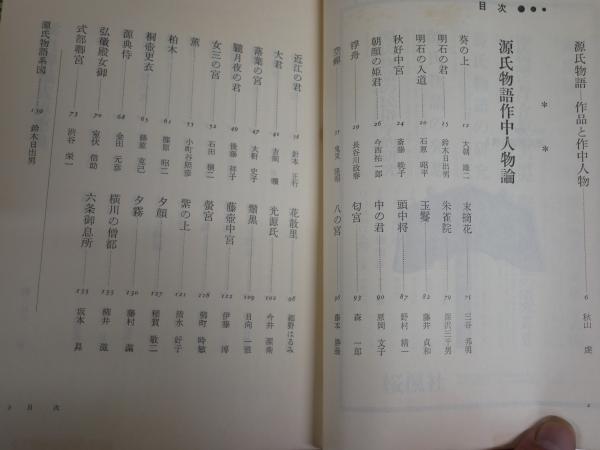 目次
源氏物語 作品と作中人物 6 秋山 虔
源氏物語作中人物論
葵の上 12 大朝 雄二
明石の君 15 鈴木日出男
明石の入道 20 石原 昭平
秋好中宮 24 斎藤 暁子
朝顔の姫君 26 今西祐一郎
浮舟 29 長谷川政春
空蟬
末摘花 75 三谷 邦明
朱雀院 79 深沢三千男
玉鬘 82 藤井 貞和
頭中将 87 野村 精一
中の君 90 原岡 文子
匂宮 93 森 一郎
八の宮 96 藤本 勝義
近江の君 38 鈴木 正行
大君 41
落葉の宮 47 大朝
朧月夜の君 49 後藤 祥子
女三の宮 52 石田 穣二
薫 55 小町谷照彦
柏木 61 篠原 昭二
桐壺更衣 65 藤原 克己
源典侍 68 金田 元彦
弘徽殿女御 70 室伏 信助
式部卿宮 73 渋谷 栄一
花散里 98 細野はるみ
光源氏 102 今井 源衛
鬚黒 109 日向 一雅
藤壺中宮 112 伊藤 博
螢宮 118 菊町 時敏
紫の上 121 清水 好子
夕顔 127 稲賀 敬二
夕霧 130 藤村 潔
横川の僧都 133 柳井 滋
六条御息所 135 坂本 昇
源氏物語系図 139 鈴木日出男
3 目次
2